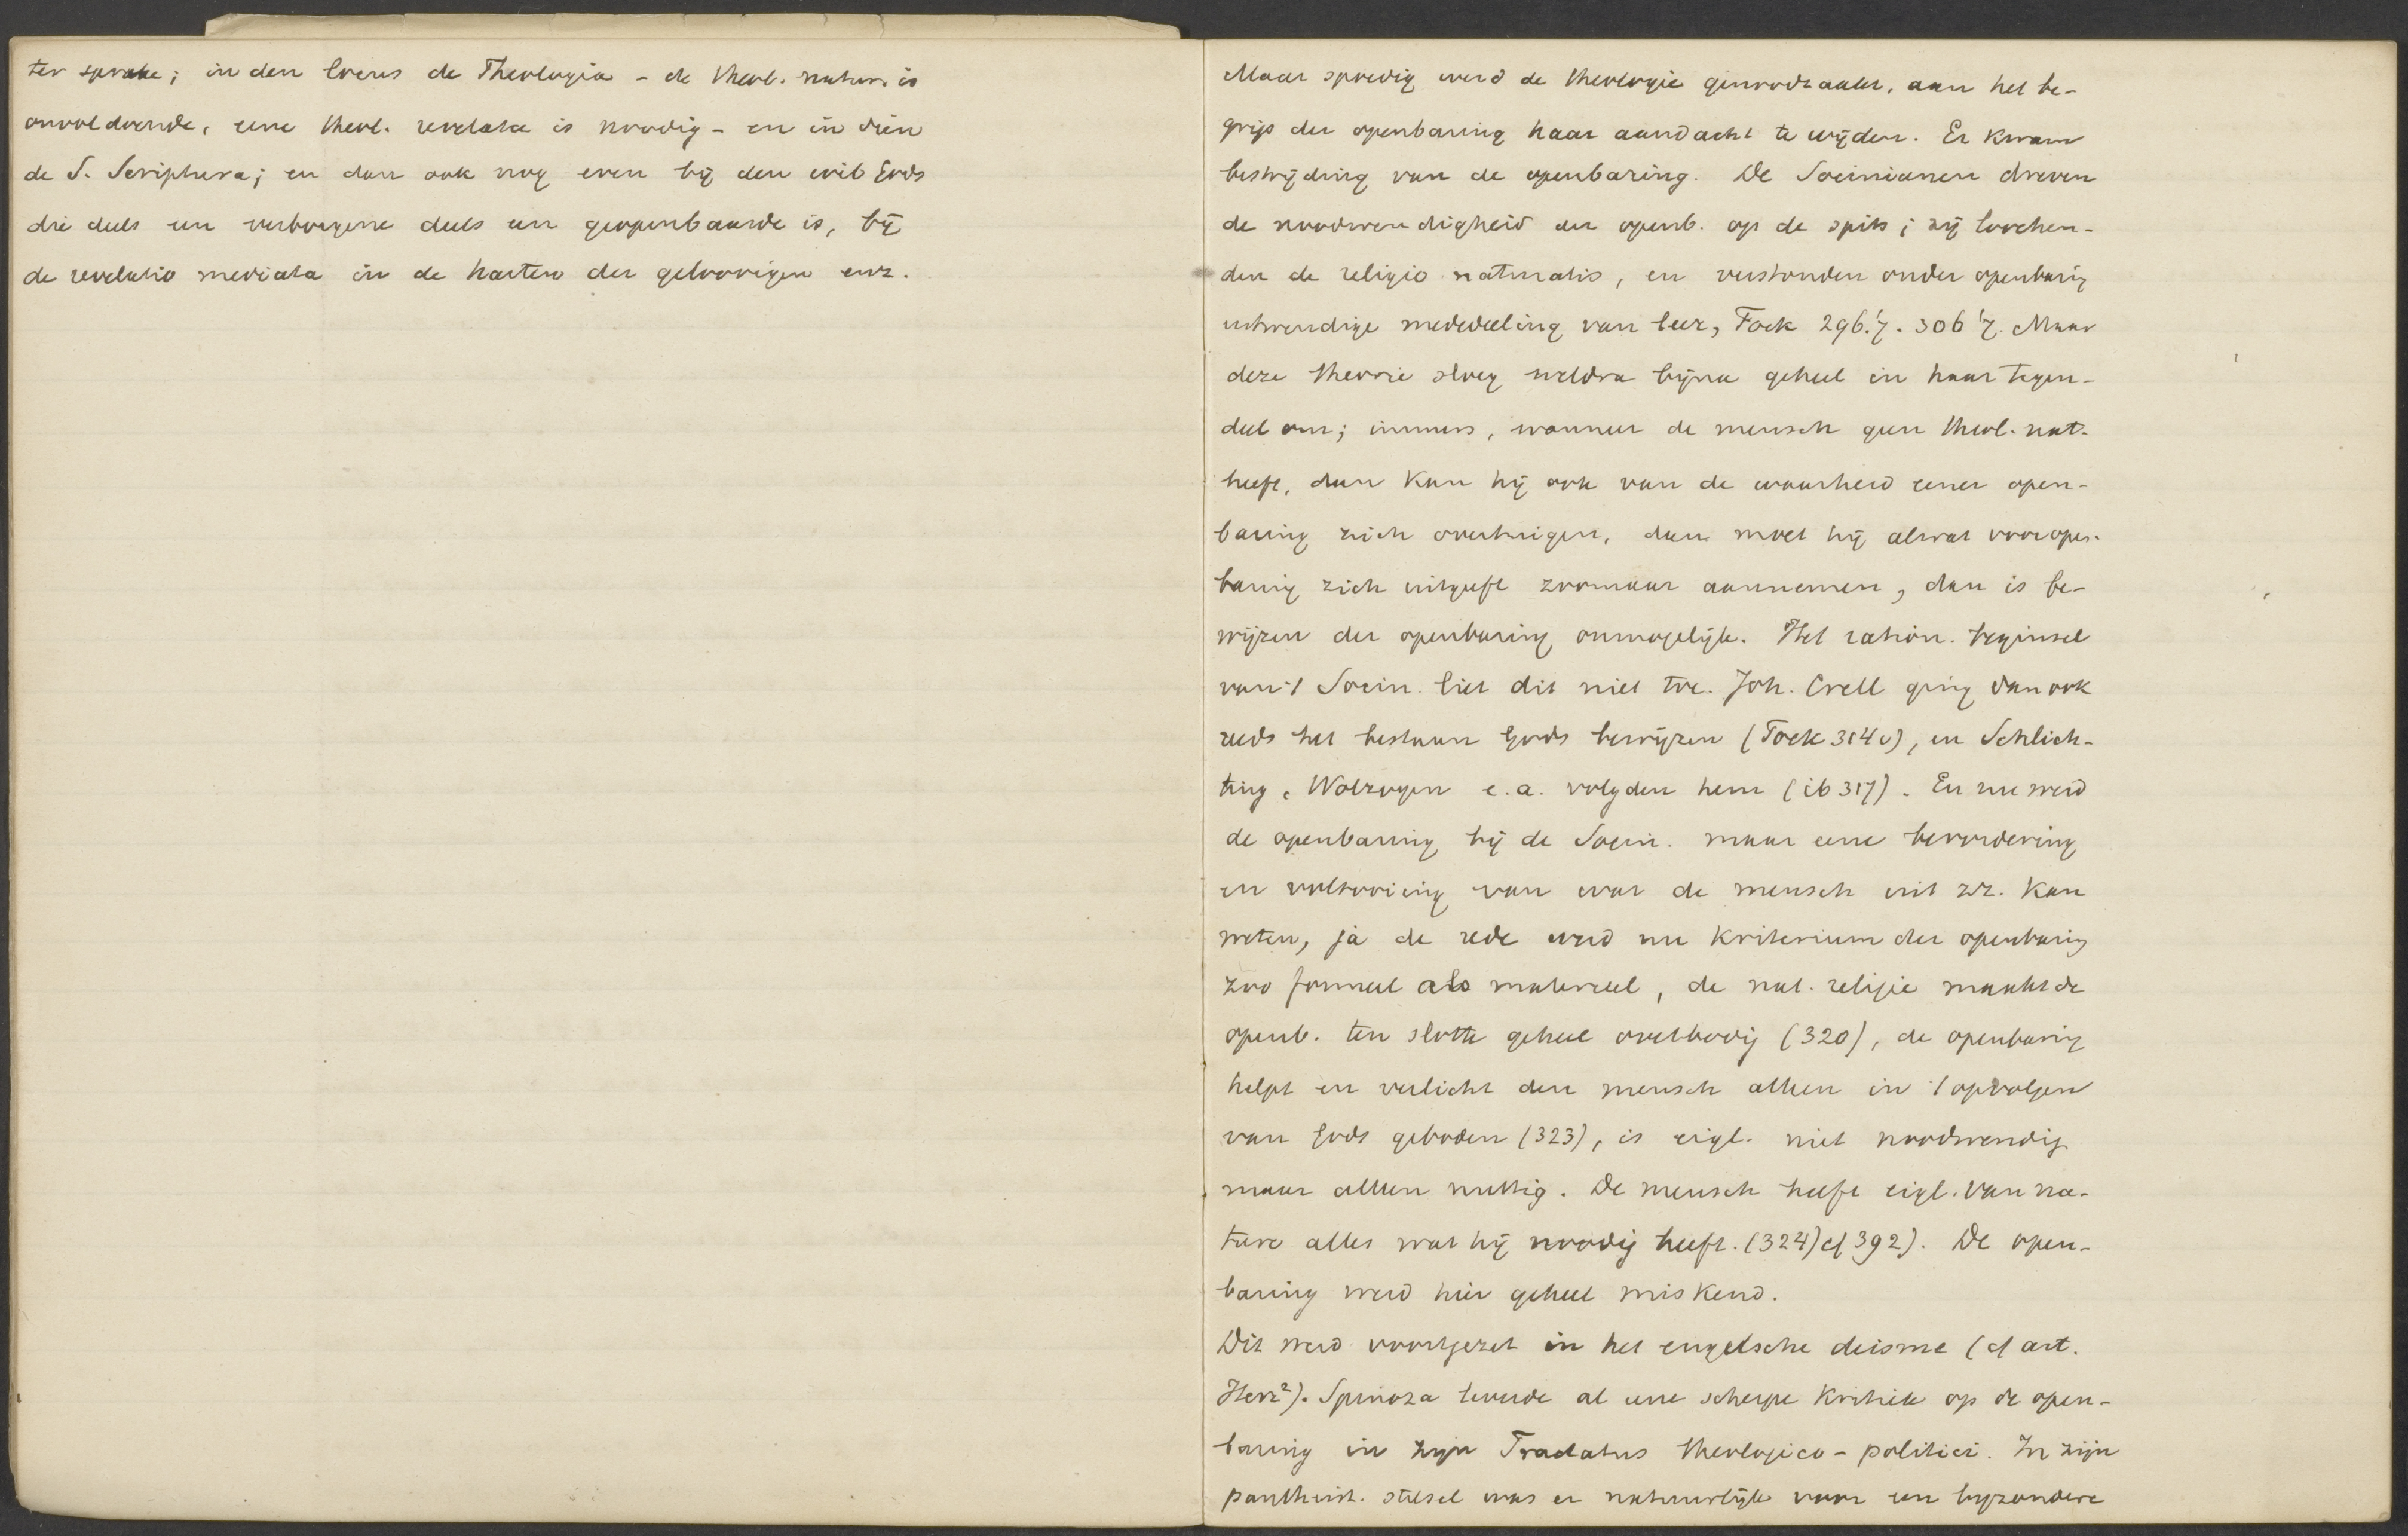 ter sprake; in den locus de Theologia - de theol. natur. is
onvoldoende, eene theol. revelata is noodig - en in dien
de S. Scriptura; en dan ook nog even bij den wil Gods
die deels een verborgene deels een geopenbaarde is, bij
de revelatio mediata in de harten der geloovigen enz.
Maar spoedig werd de theologie genoodzaakt, aan het be-
grip der openbaring haar aandacht te wijden. Er kwam
bestrijding van de openbaring. De Socinianen dreven
de noodwendigheid der openb. op de spits; zij loochen-
den de religio naturalis, en verstonden onder openbaring
uitwendige mededeeling van leer, Fock 296. 306 Maar
deze theorie sloeg weldra bijna geheel in haar tegen-
deel om; immers, wanneer de mensch geen theol. nat.
heeft, dan kan hij ook van de waarheid eener open-
baring zich overtuigen, dan moet hij alwat voor open-
baring zich uitgeeft zoomaar aannemen, dan is be-
wijzen der openbaring onmogelijk. Het ration. beginsel
van 't Socin. liet dit niet toe. Joh. Crell ging dan ook
reeds het bestaan Gods bewijzen (Fock 314 v), en Schlich-
ting, Wolzogen e.a. volgden hem (ib 317). En nu werd
de openbaring bij de Socin. maar eene bevordering
en voltooiing van wat de mensch uit zz. kan
weten, ja de rede werd nu kriterium der openbaring
zoo formeel als materieel, de nat. religie maakt de
openb. ten slotte geheel overbodig (320), de openbaring
helpt en verlicht den mensch alleen in 't opvolgen
van Gods geboden (323), is eigl. niet noodwendig
maar alleen nuttig. De mensch heeft eigl. van na-
ture alles wat hij noodig heeft. (324) cf 392). De open-
baring werd hier geheel miskend.
Dit werd voortgezet in het engelsche deisme (cf art.
Herz²). Spinoza leverde al eene scherpe kritiek op de open-
baring in zijn Tractatus theologico-politici. In zijn
pantheist. stelsel was er natuurlijk voor een bijzondere